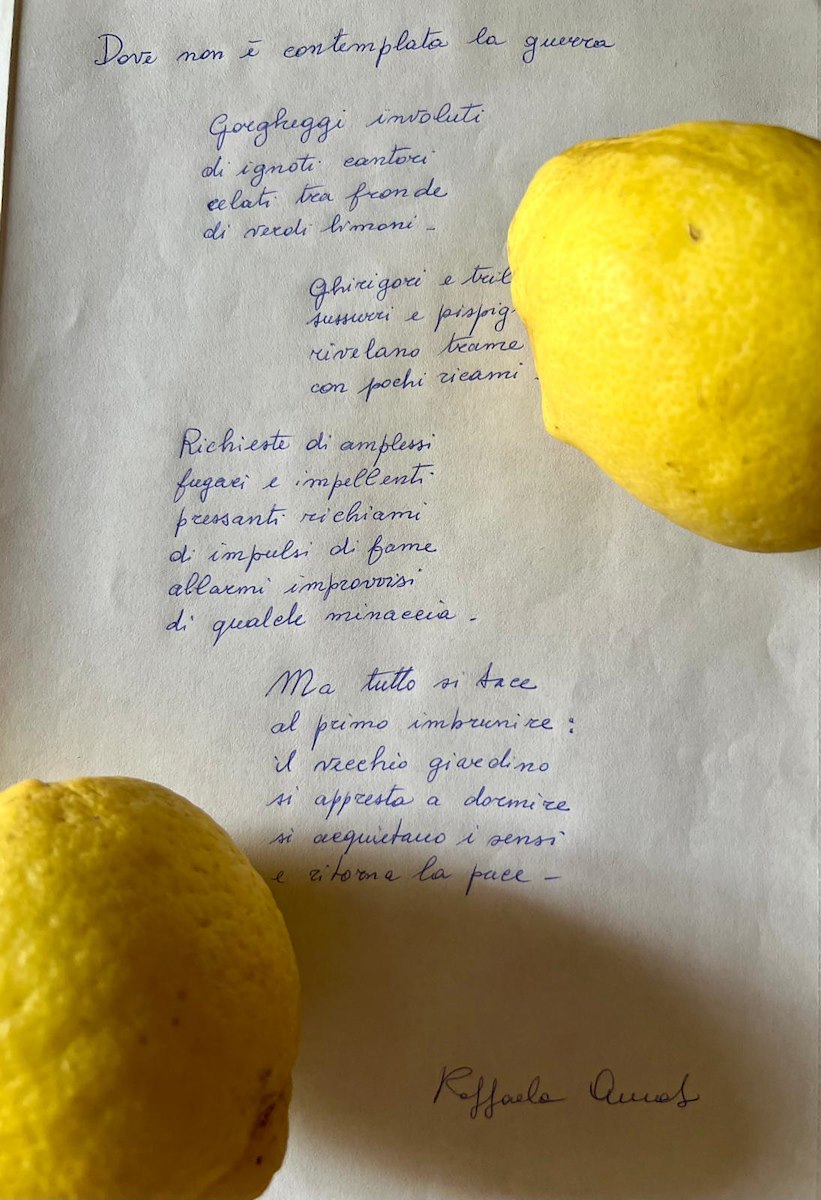 Dove non è contemplata la guerra
Gorgheggi involuti
di ignoti cantori
celati tra fronde
di verdi limoni -
Ghirigori e tril
sussurri e pispig
rivelano trame
con pochi ricami -
Richieste di amplessi
fugaci e impellenti
pressanti richiami
di impulsi di fame
allarmi improvvisi
di qualche minaccia -
Ma tutto si tace
al primo imbrunire:
il vecchio giardino
si appresta a dormire
si acquietano i sensi
e ritorna la pace -
Raffaela